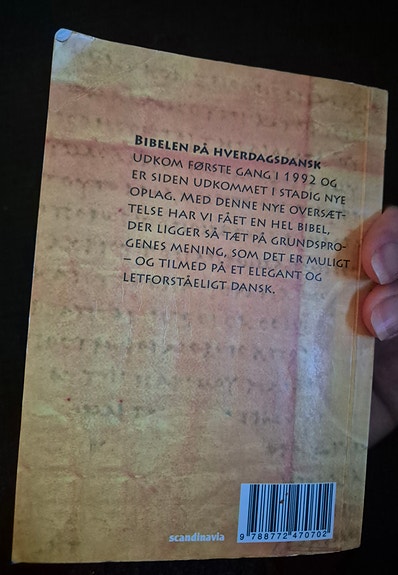 BIBELEN PÅ HVERDAGSDANSK
UDKOM FØRSTE GANG I 1992 OG
ER SIDEN UDKOMMET I STADIG NYE
OPLAG. MED DENNE NYE OVERSÆT-
TELSE HAR VI FÅET EN HEL BIBEL,
DER LIGGER SÅ TÆT PÅ GRUNDSPRO-
GENES MENING, SOM DET ER MULIGT
– OG TILMED PÅ ET ELEGANT OG
LETFORSTÅELIGT DANSK.
scandinavia
9 788772 470702